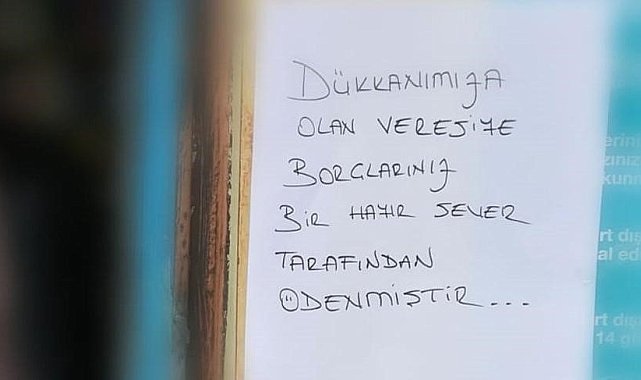 DÜKKANIMIZA
OLAN VERESİYE
BORÇLARINIZ
BİR HAYIR SEVER
TARAFINDAN
ÖDENMİŞTİR...
erini
zınız
kunm
rt dış
al ed
rt dış
14 gü